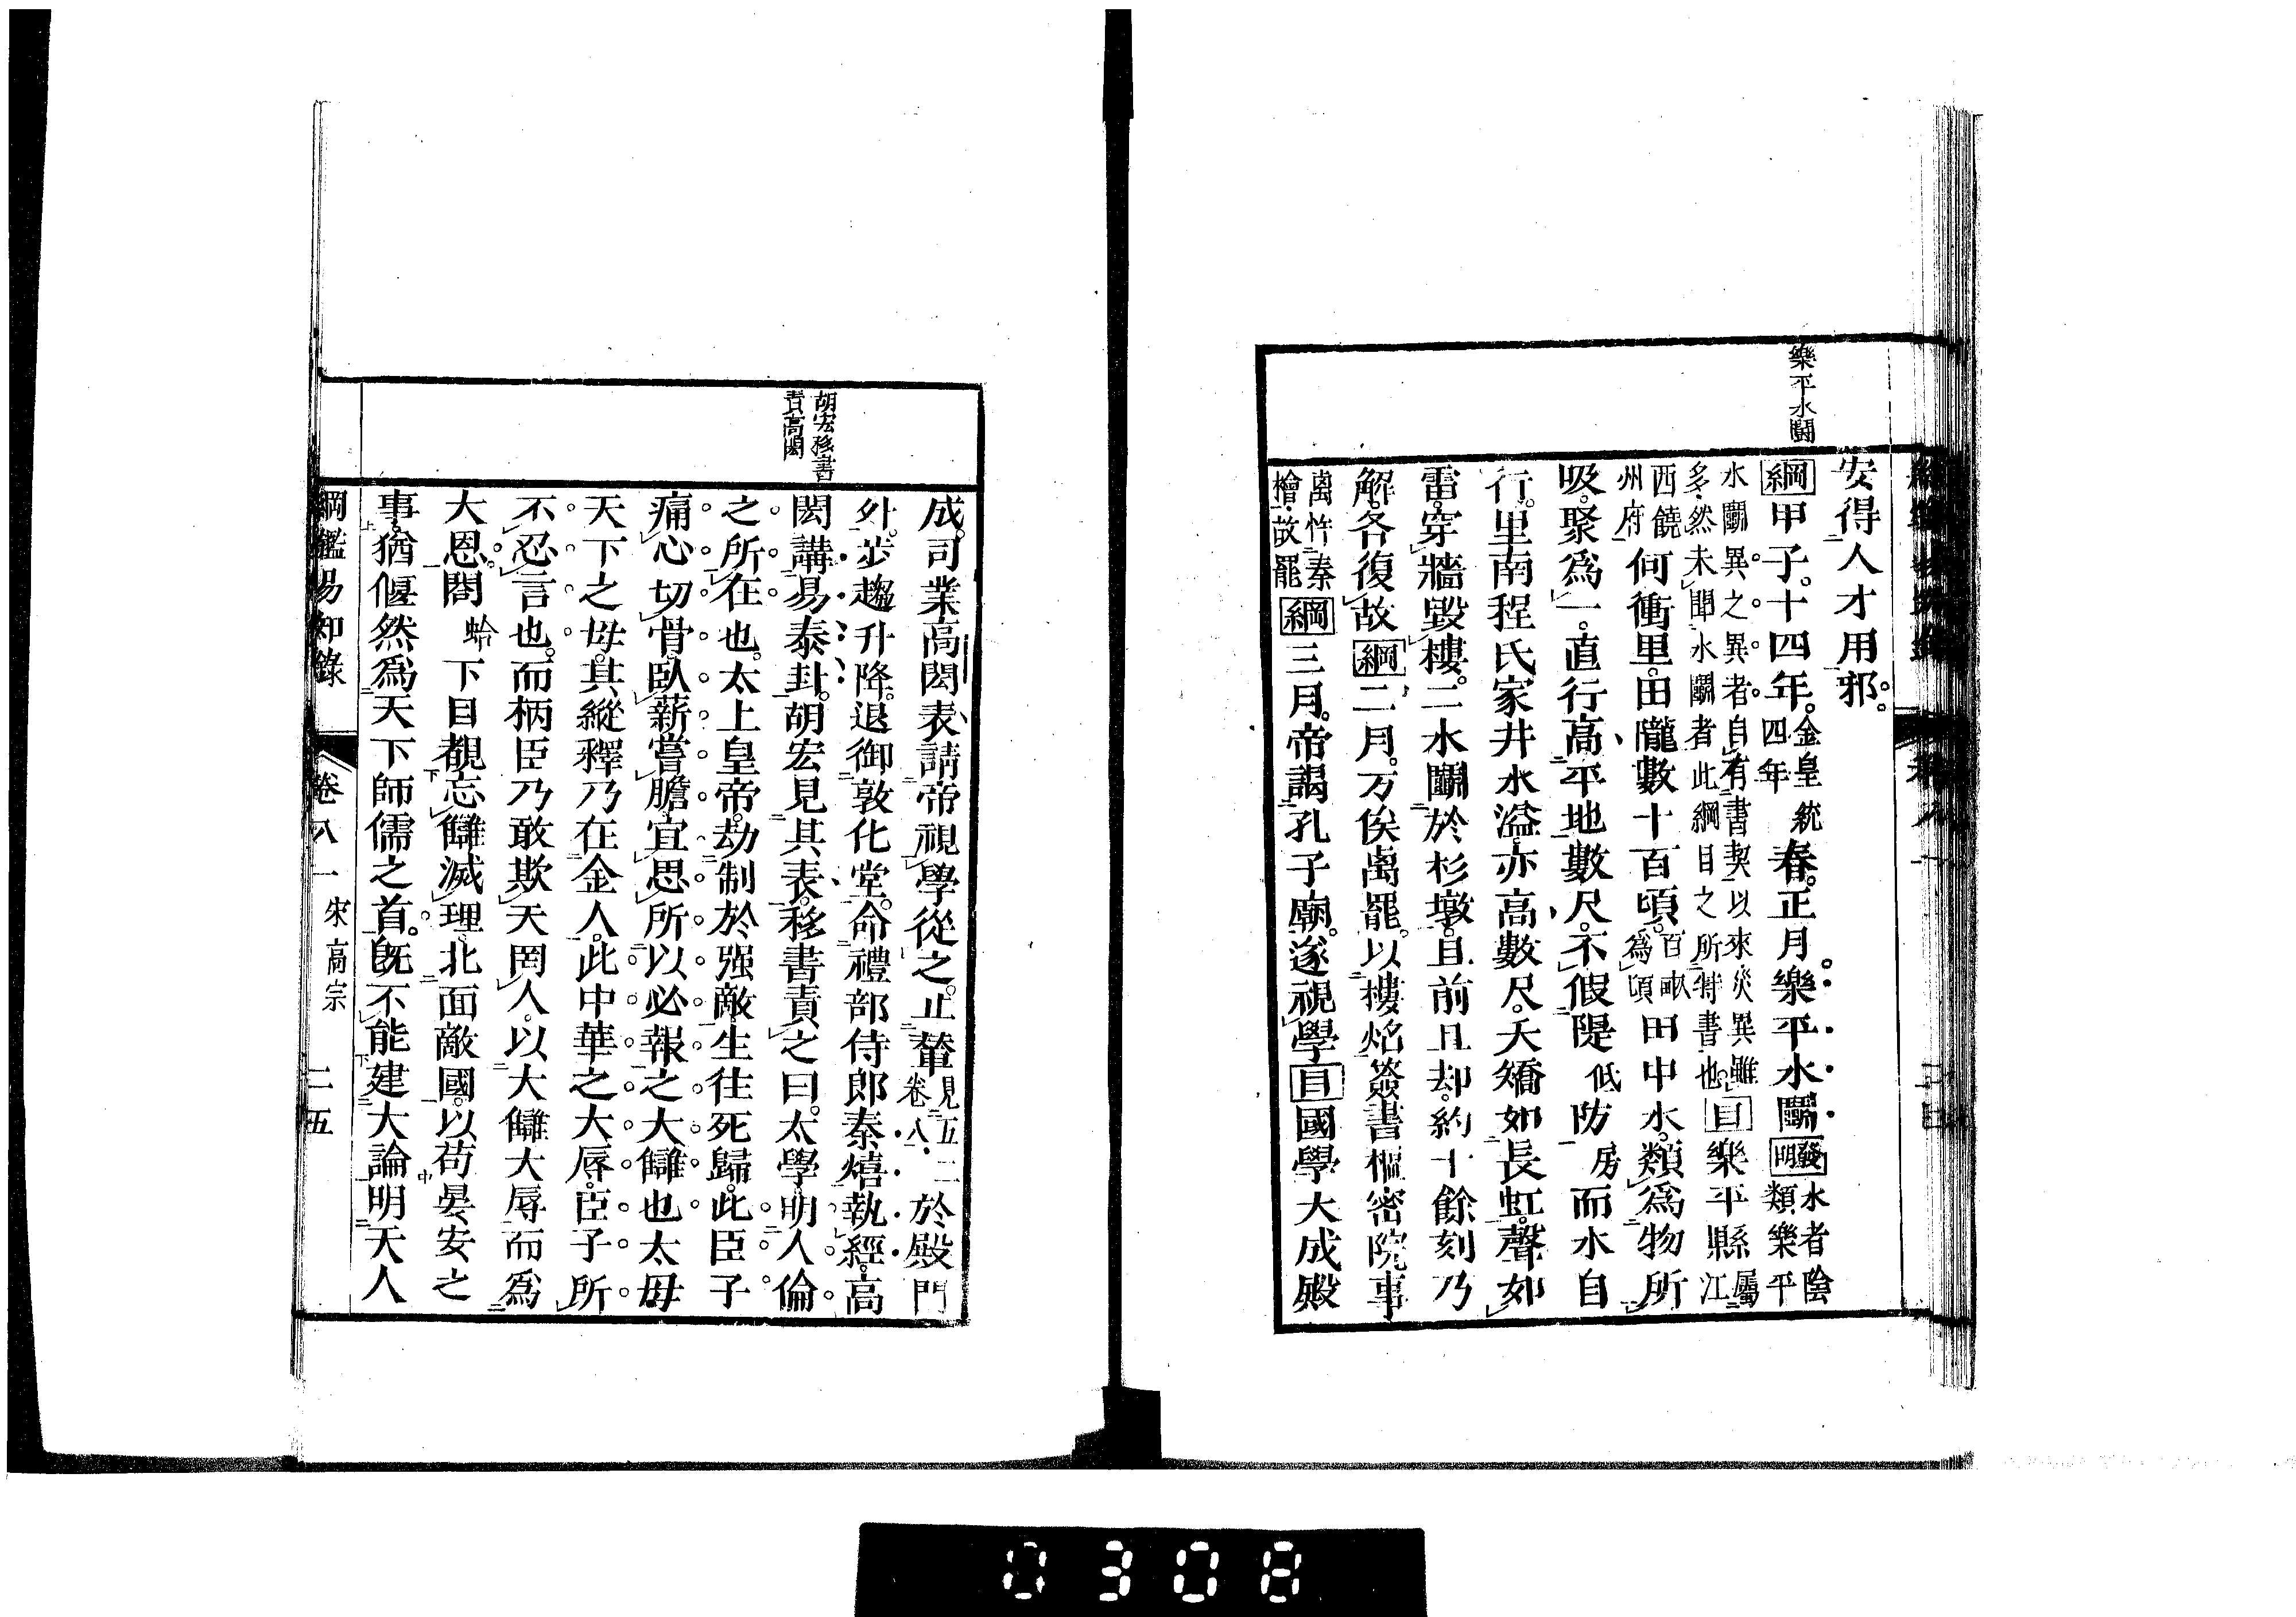 樂平水鬭
安得人才用邪。
綱甲子。十四年。金皇統四年春。正月樂平水鬭發明水者陰類樂平
水鬭異之異者自有書契以來災異雖
多然未聞水鬭者此綱目之所特書也。目樂平縣屬江
西饒州府何衝里。田隴數十百頃。百畝爲頃田中水。類爲物所
吸。聚爲一。直行高平地數尺。不假隄低防房而水自
行。里南程氏家井水溢。亦高數尺。夭矯如長虹。聲如
雷。穿牆毀樓。二水鬭於杉墩。且前且却。約十餘刻乃
解。各復故綱二月。万俟卨罷。以樓炤簽書樞密院事
卨忤秦檜故罷綱三月。帝謁孔子廟。遂視學目國學大成殿
胡宏移書
責高閌
成。司業高閌表請帝視學從之。止輦見五二卷八於殿門
外。步趨升降。退御敦化堂。命禮部侍郎秦熺執經。高
閌講易泰卦。胡宏見其表。移書責之曰。太學明人倫
之所在也。太上皇帝。劫制於强敵。生往死歸。此臣子
痛心切骨。臥薪嘗膽。宜思所以必報之大讎也太母
天下之母。其縱釋乃在金人。此中華之大辱。臣子所
不忍言也。而柄臣乃敢欺天罔人。以大讎大辱而爲
大恩。閤蛤下目覩忘讎滅理。北面敵國。以苟晏安之
事。猶偃然爲天下師儒之首。旣不能建大論明天人
綱鑑易知錄 卷八一 宋高宗 二五
0308